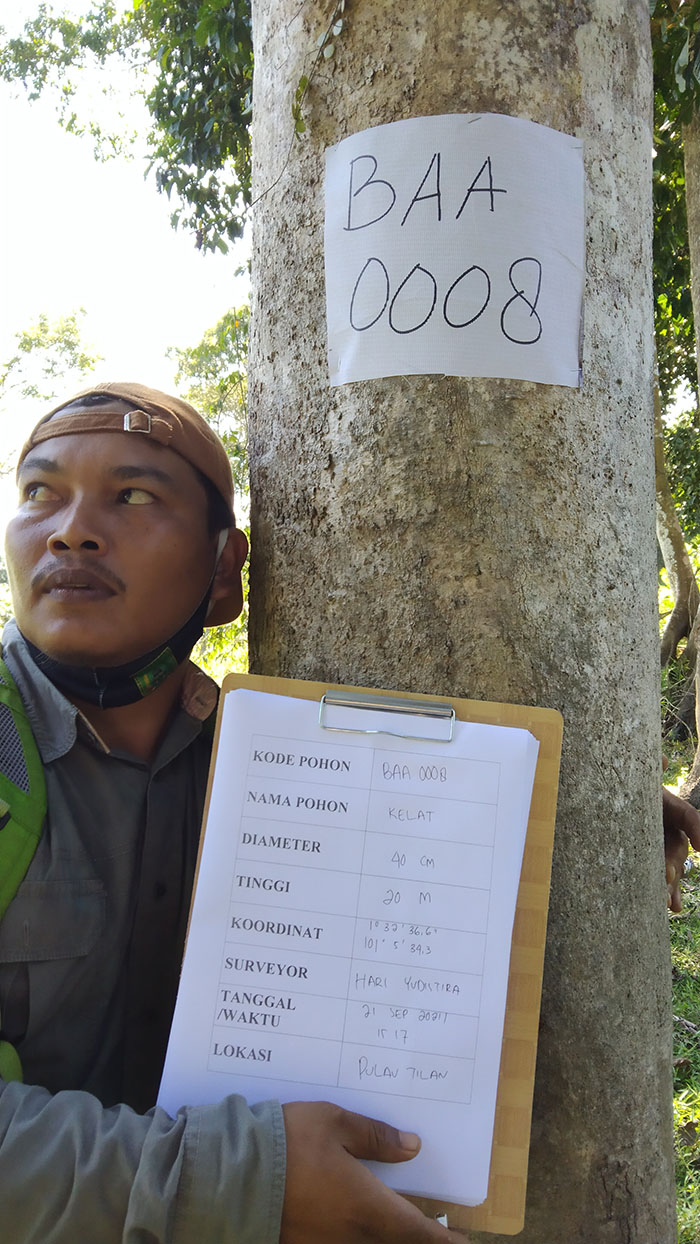 BAA
0008
KODE POHON BAA 0008
NAMA POHON KELAT
DIAMETER 40 CM
TINGGI 20 M
KOORDINAT 1° 32' 36,6"
101° 5' 34,3
SURVEYOR HARI YUDISTIRA
TANGGAL 21 SEP 2021
/WAKTU 15 17
LOKASI PULAU TILAN